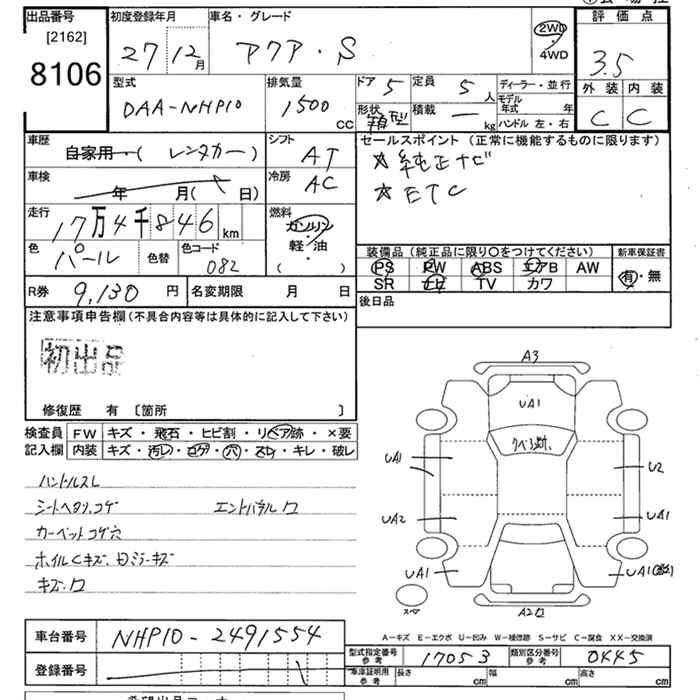 出品番号 初度登録年月 車名・グレード
[2162]
8106
27 12月 アクア・S
2WD
4WD
評価点
3.5
外装 内装
C C
型式 排気量 ドア 5 定員 5人 ディーラー・並行
DAA-NHP10 1500CC
形状 積載 kg
モデル年式 年
ハンドル 左・右
車歴 シフト セールスポイント (正常に機能するものに限ります)
自家用 ( レンタカー ) AT ☆純正ナビ
車検 冷房
年 月( 日) AC ☆ETC
走行 燃料
17万4千846km ガソリン
軽・油
( )
色 パール 色替 色コード 082
装備品(純正品に限り○をつけてください) 新車保証書
PS PW ABS エアB AW 有・無
SR ナビ TV カワ
R券 9,130円 名変期限 月 日 後日品
注意事項申告欄(不具合内容等は具体的に記入して下さい)
初出品
修復歴 有 〔箇所 〕
検査員 FW キズ・飛石・ヒビ割・リペア跡・×要
記入欄 内装 キズ・汚レ・コゲ・穴・スレ・キレ・破レ
ハンドルスレ
シートヘタリ、コゲ
カーペットコゲ穴
A3
UA1
UA1 U2
UA2 UA1
UA1 UA1
スペア
A-キズ E-エクボ U-凹み W-補修跡 S-サビ C-腐食 XX-交換済
車台番号 NHP10-2491554
型式指定番号 参考 17053 類別区分番号 参考 0445
登録番号
車庫証明用 参考 長さ cm 幅 cm 高さ cm